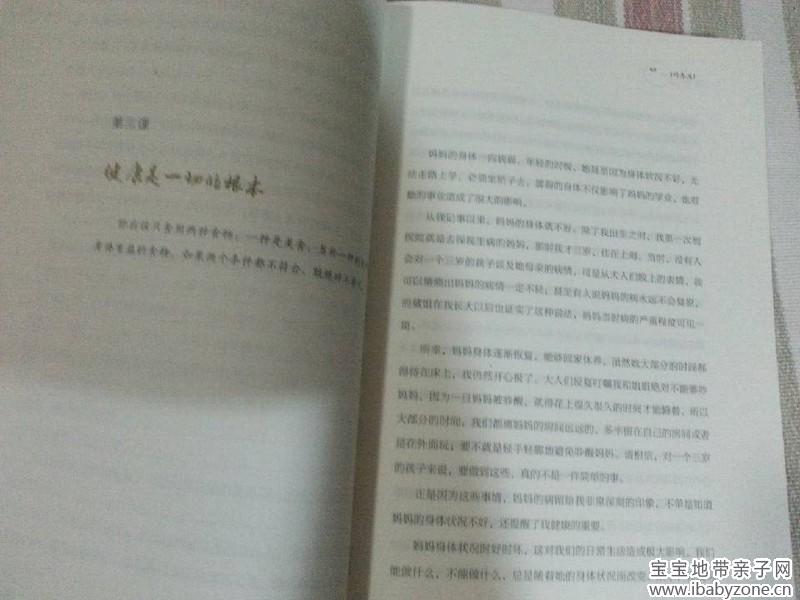 第三课
健康是一切的根本
你应该只食用两种食物：一种是美食，另外一种
身体有益的食物。如果两个条件都不符合，
妈妈的身体一向病弱。年轻的时候，她甚至因为身体状况不好，无
法走路上学，必须坐轿子去。孱弱的身体不仅影响了妈妈的学业，也对
她的事业造成了很大的影响。
从我记事以来，妈妈的身体就不好。除了我出生之时，我第一次到
医院就是去探视生病的妈妈，那时我才三岁，住在上海。当时，没有人
会对一个三岁的孩子谈及她母亲的病情，可是从大人们脸上的表情，我
可以猜测出妈妈的病情一定不轻；甚至有人说妈妈的病永远不会复原，
在我长大以后也证实了这种说法，妈妈当时病的严重程度可见一
斑。
所幸，妈妈身体逐渐恢复，能够回家休养，虽然她大部分的时间都
得待在床上，我仍然开心极了。大人们反复叮嘱我和姐姐绝对不能够吵
妈妈，因为一旦妈妈被吵醒，就得花上很久很久的时间才能睡着。所以
大部分的时间，我们都离妈妈的房间远远的，多半留在自己的房间或者
是在外面玩；要不就是轻手轻脚地避免吵醒妈妈。请相信，对一个三岁
的孩子来说，要做到这些，真的不是一件简单的事。
正是因为这些事情，妈妈的病留给我非常深刻的印象，不单是知道
妈妈的身体状况不好，还提醒了我健康的重要。
妈妈身体状况时好时坏，这对我们的日常生活造成极大影响，我们
能做什么，不能做什么，总是随着她的身体状况而改变
宝宝地带亲子网
www.ibabyzone.cn